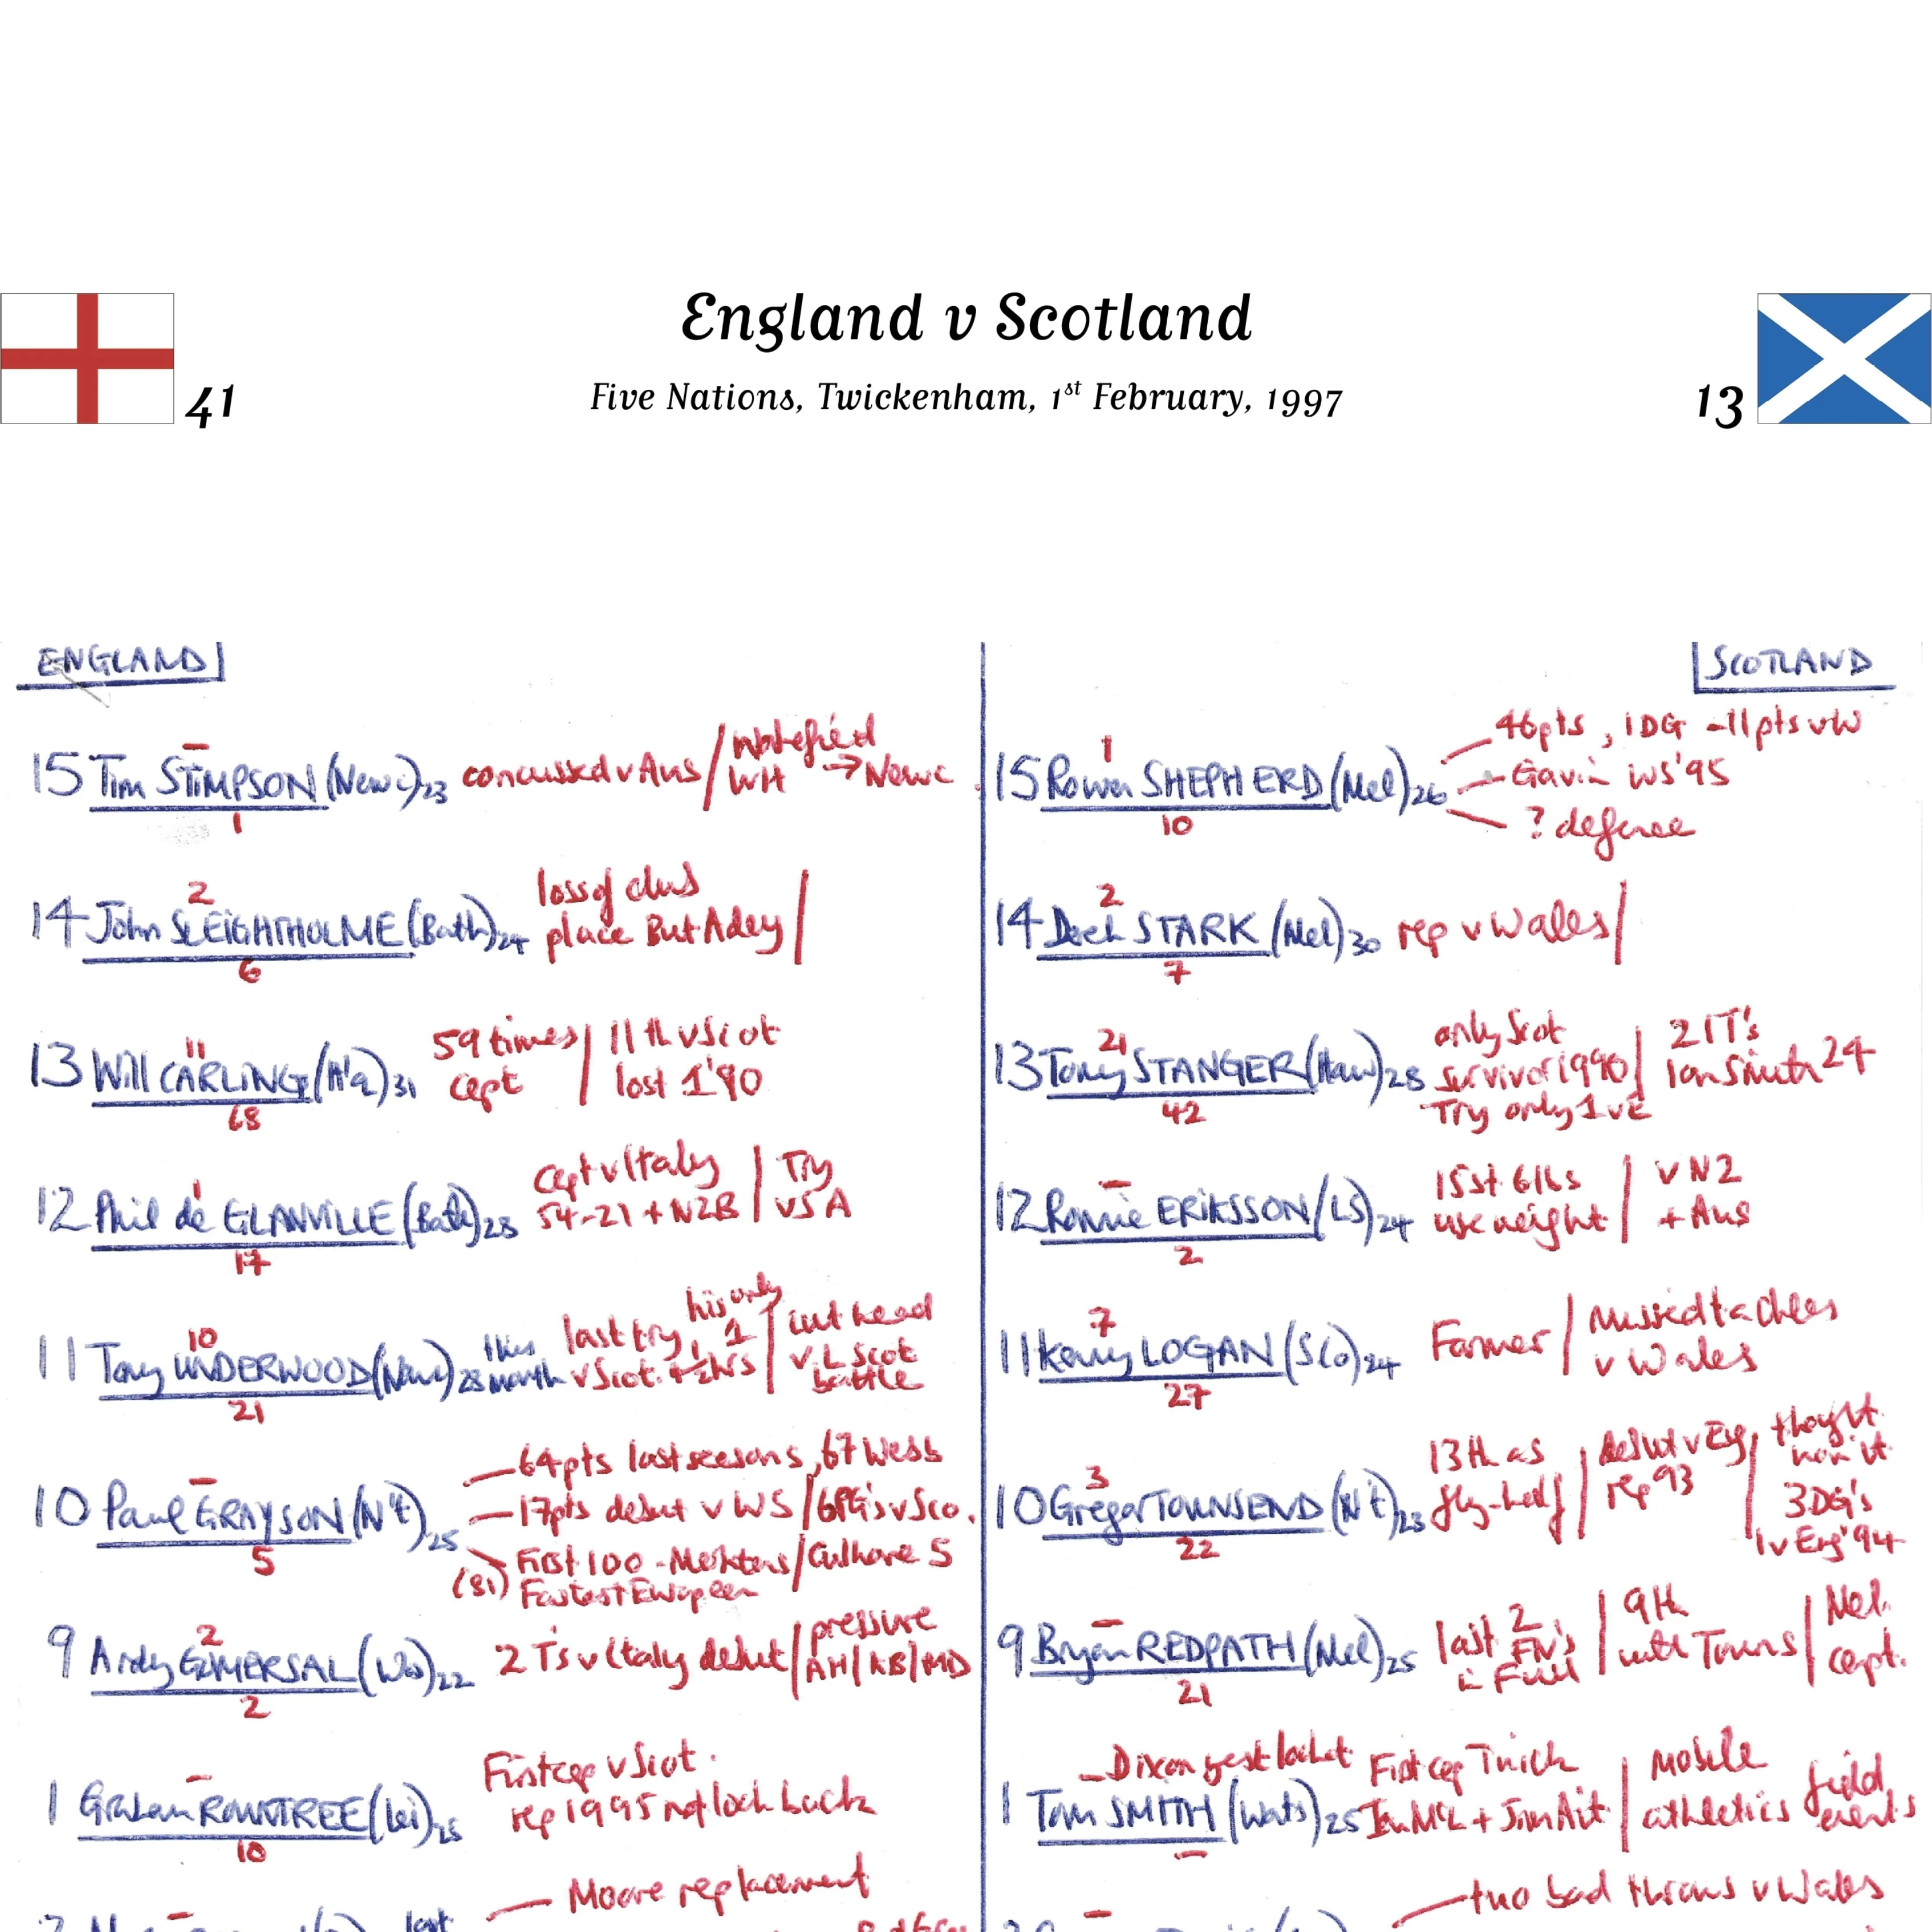 England v Scotland
41
Five Nations, Twickenham, 1st February, 1997
13
ENGLAND
15 Tim STIMPSON (Newc) 23 concussed v Aus / WH → Newc
-
1
14 John SLEIGHTHOLME (Bath) 24 loss of club place But Adey /
2
6
13 Will CARLING (H'q) 31 59 times capt / 11th v Scot lost 1 '90
11
68
12 Phil de GLANVILLE (Bath) 28 capt v Italy 54-21 + NZB / Try v SA
1
17
11 Tony UNDERWOOD (Newc) 28 this month last try, his only 1 v Scot. / cut head v L Scot battle
10
21
10 Paul GRAYSON (N't) 25
-
5
64pts last seasons, 67 Wess
17pts debut v WS / 6PG's v Sco.
(81) First 100 - Mehrtens / Culhane 5
Fastest European
9 Andy GOMERSAL (Ws) 22 2 T's v Italy debut / pressure AH / KB / MD
2
2
1 Graham ROWNTREE (Lei) 25 First cap v Scot. rep 1995 not look back
-
10
Moore replacement
last
SCOTLAND
15 Rowen SHEPHERD (Mel) 26
1
10
46pts, 1DG - 11pts v W
Gavin WS '95
? defence
14 STARK (Mel) 30 rep v Wales /
2
7
13 Tony STANGER (Haw) 28 only Scot survivor 1990 Try only 1 v E / 21T's Ian Smith 24
21
42
12 Ronnie ERIKSSON (LS) 24 15st 6lbs use weight / v NZ + Aus
-
2
11 Kenny LOGAN (S Co) 24 Farmer / Missed tackles v Wales
7
27
10 Gregor TOWNSEND (N't) 23 13th as fly-half / debut v Eng rep 93 / thought won it 3DG's 1 v Eng '94
3
22
9 Bryan REDPATH (Mel) 25 last 2 FN's in Full / 9th with Towns / Mel. capt.
-
21
1 Tom SMITH (Wats) 25 First cap Twick Ian McL + Jim Ait / Mobile athletics field events
- Dixon
-
two bad throws v Wales